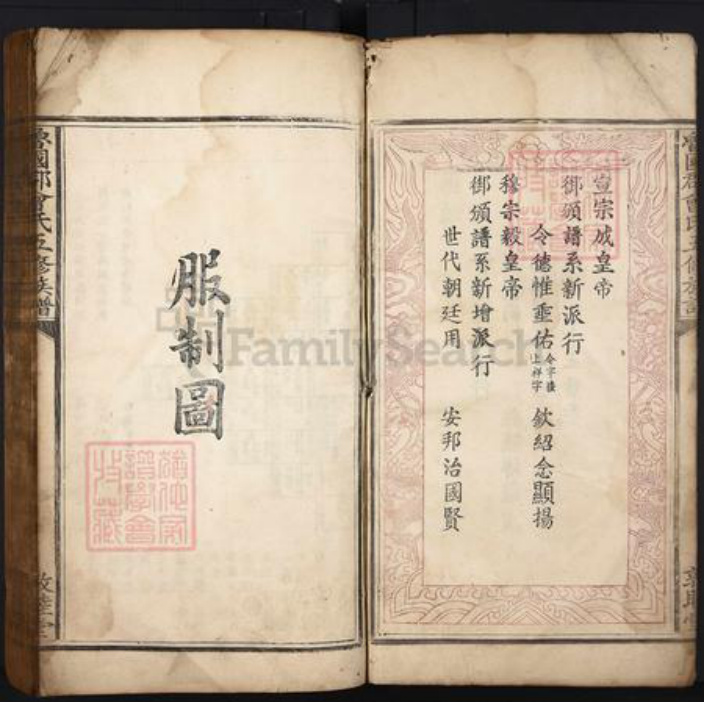 宣宗成皇帝
御頒譜系新派行
令德惟垂佑 令字後上祥字 欽紹念顯揚
穆宗毅皇帝
御頒譜系新增派行
世代朝廷用 安邦治國賢
服制圖
魯國郡曾氏五修族譜
敦睦堂
FamilySearch